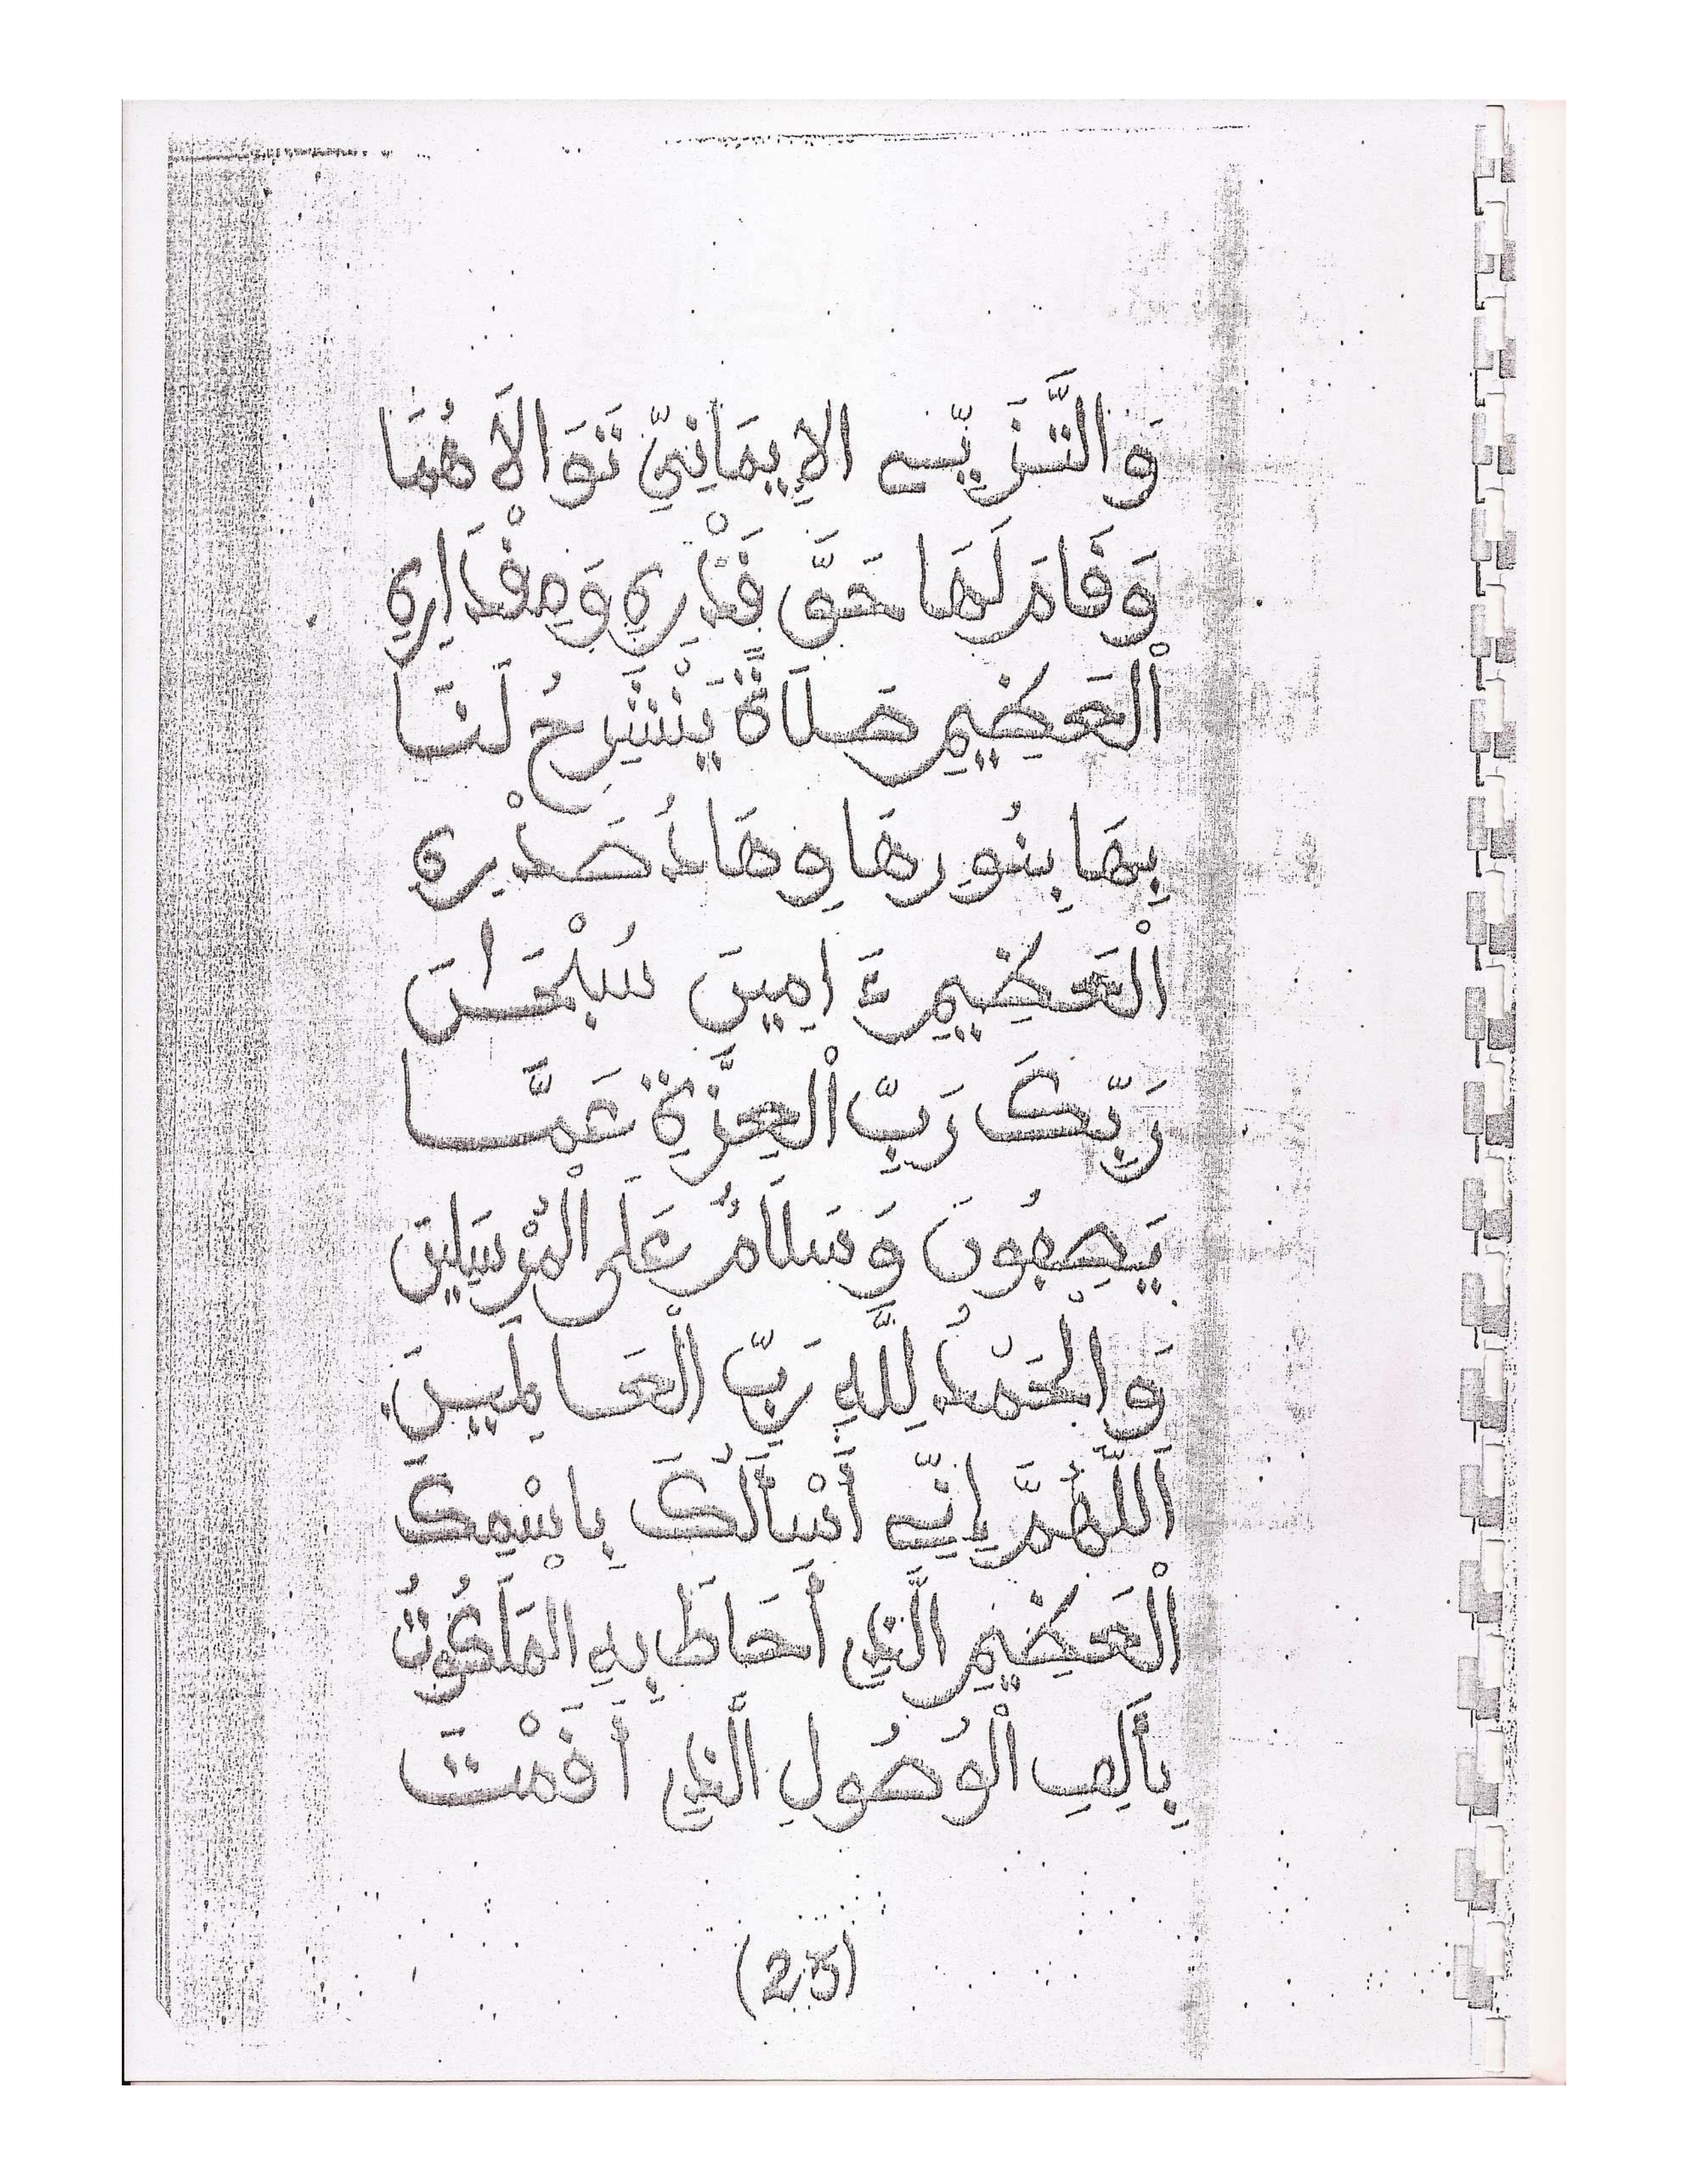 الإِيمَانِيِّ تَوَالاَهُمَا
وَقَامَ لَهَا حَقَّ قَدْرِهِ وَمِقْدَارِهِ
الْعَظِيمِ صَلاَةً يَنْشَرِحُ لَنَا
بِهَا بِنُورِهَا وِهَادُ صَدْرِهِ
الْعَظِيمِ ءَامِينَ سُبْحَانَ
رَبِّكَ رَبِّ الْعِزَّةِ عَمَّا
يَصِفُونَ وَسَلاَمٌ عَلَى الْمُرْسَلِينَ
وَالْحَمْدُ لِلَّهِ رَبِّ الْعَالَمِينَ.
اَللَّهُمَّ إِنِّي أَسْأَلُكَ بِاسْمِكَ
الْعَظِيمِ الَّذِي أَحَاطَ بِهِ الْمَلَكُوتُ
بِأَلِفِ الْوُصُولِ الَّذِي أَقَمْتَ
(25)